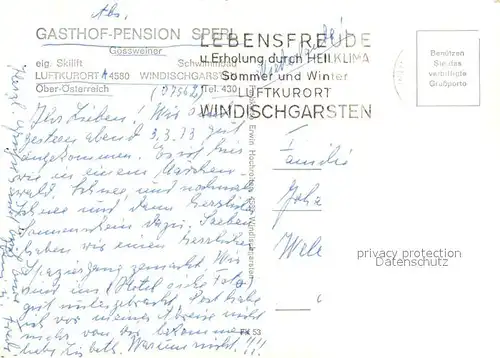 Abs.
GASTHOF-PENSION SPERL
Gossweiner
eig. Skilift Schwimmbad
LUFTKURORT A 4580 WINDISCHGARSTEN
Ober-Österreich (07562) Tel. 430
LEBENSFREUDE
u.Erholung durch HEILKLIMA
Sommer und Winter
LUFTKURORT
WINDISCHGARSTEN
Benützen
Sie das
verbilligte
Grußporto
Ihr Lieben! Wir sind
gestern abend 3.3.73 gut
angekommen. Es ist hier
wie in einem Märchen-
wald. Schnee und nochmals
Schnee und dann herrlicher
Sonnenschein dazu. Soeben
haben wir einen herrlichen
Spaziergang gemacht. Wir
sind im Hotel
gut untergebracht. Post habe
ich vor meiner Abreise nicht
mehr von dir bekommen
liebe Lisbeth. Warum nicht!!!
Familie
Joha
Wele
privacy protection
Datenschutz
FK 53